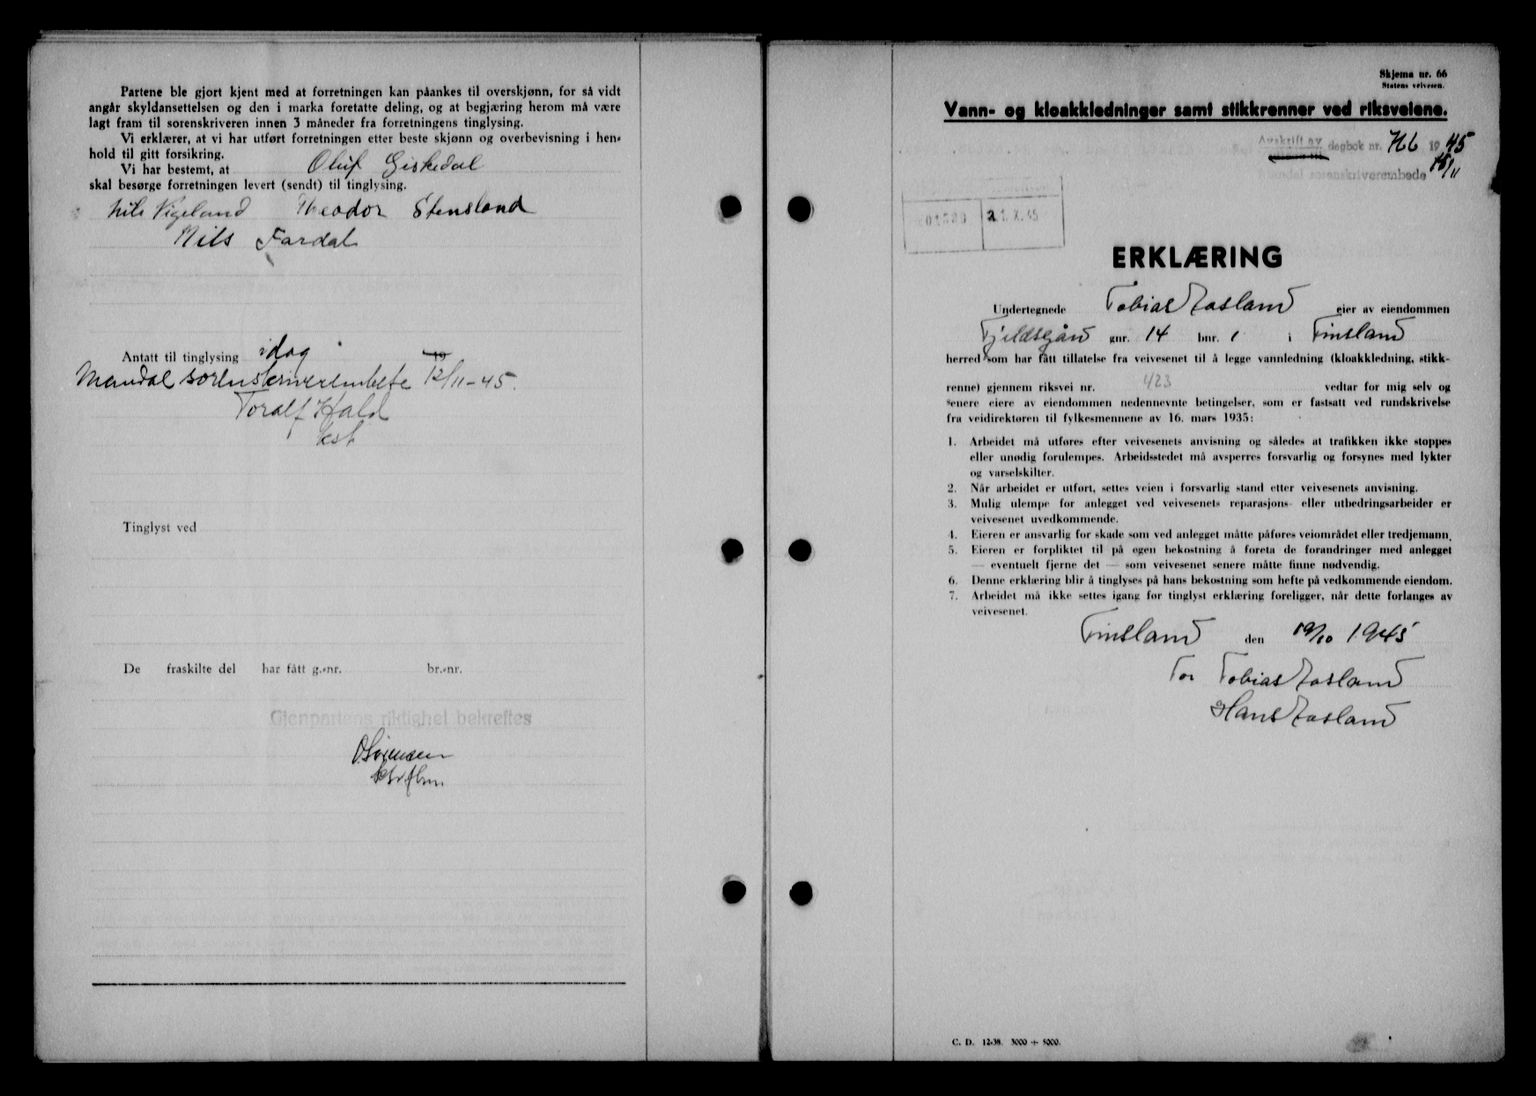 Partene ble gjort kjent med at forretningen kan påankes til overskjønn, for så vidt
angår skyldansettelsen og den i marka foretatte deling, og at begjæring herom må være
lagt fram til sorenskriveren innen 3 måneder fra forretningens tinglysing.
Vi erklærer, at vi har utført forretningen etter beste skjønn og overbevisning i hen-
hold til gitt forsikring.
Vi har bestemt, at Oluf Giskedal
skal besørge forretningen levert (sendt) til tinglysing.
Nils Vigeland Theodor Stensland
Nils Fardal
Antatt til tinglysing idag
Mandal sorenskriverembete 12/11-45.
Toralf Hald
kst
Tinglyst ved
De fraskilte del har fått g.-nr. br.-nr.
Gjenpartens riktighet bekreftes
O Sørensen
Skjema nr. 66
Statens veivesen.
Vann- og kloakkledninger samt stikkrenner ved riksveiene.
Avskrift av dagbok nr. 766 1945
Mandal sorenskriverembede 15/11
21.X.45
ERKLÆRING
Undertegnede Tobias Aasland eier av eiendommen
Fjeldsgård gnr. 14 bnr. 1 i Finsland
herred som har fått tillatelse fra veivesenet til å legge vannledning (kloakkledning, stikk-
renne) gjennem riksvei nr. 423 vedtar for mig selv og
senere eiere av eiendommen nedennevnte betingelser, som er fastsatt ved rundskrivelse
fra veidirektøren til fylkesmennene av 16. mars 1935:
1. Arbeidet må utføres efter veivesenets anvisning og således at trafikken ikke stoppes
eller unødig forulempes. Arbeidsstedet må avsperres forsvarlig og forsynes med lykter
og varselskilter.
2. Når arbeidet er utført, settes veien i forsvarlig stand etter veivesenets anvisning.
3. Mulig ulempe for anlegget ved veivesenets reparasjons- eller utbedringsarbeider er
veivesenet uvedkommende.
4. Eieren er ansvarlig for skade som ved anlegget måtte påføres veiområdet eller tredjemann.
5. Eieren er forpliktet til på egen bekostning å foreta de forandringer med anlegget
— eventuelt fjerne det — som veivesenet senere måtte finne nødvendig.
6. Denne erklæring blir å tinglyses på hans bekostning som hefte på vedkommende eiendom.
7. Arbeidet må ikke settes igang før tinglyst erklæring foreligger, når dette forlanges av
veivesenet.
Finsland den 19/10 1945
For Tobias Aasland
Hans Aasland
C. D. 12-38. 3000 + 5000.